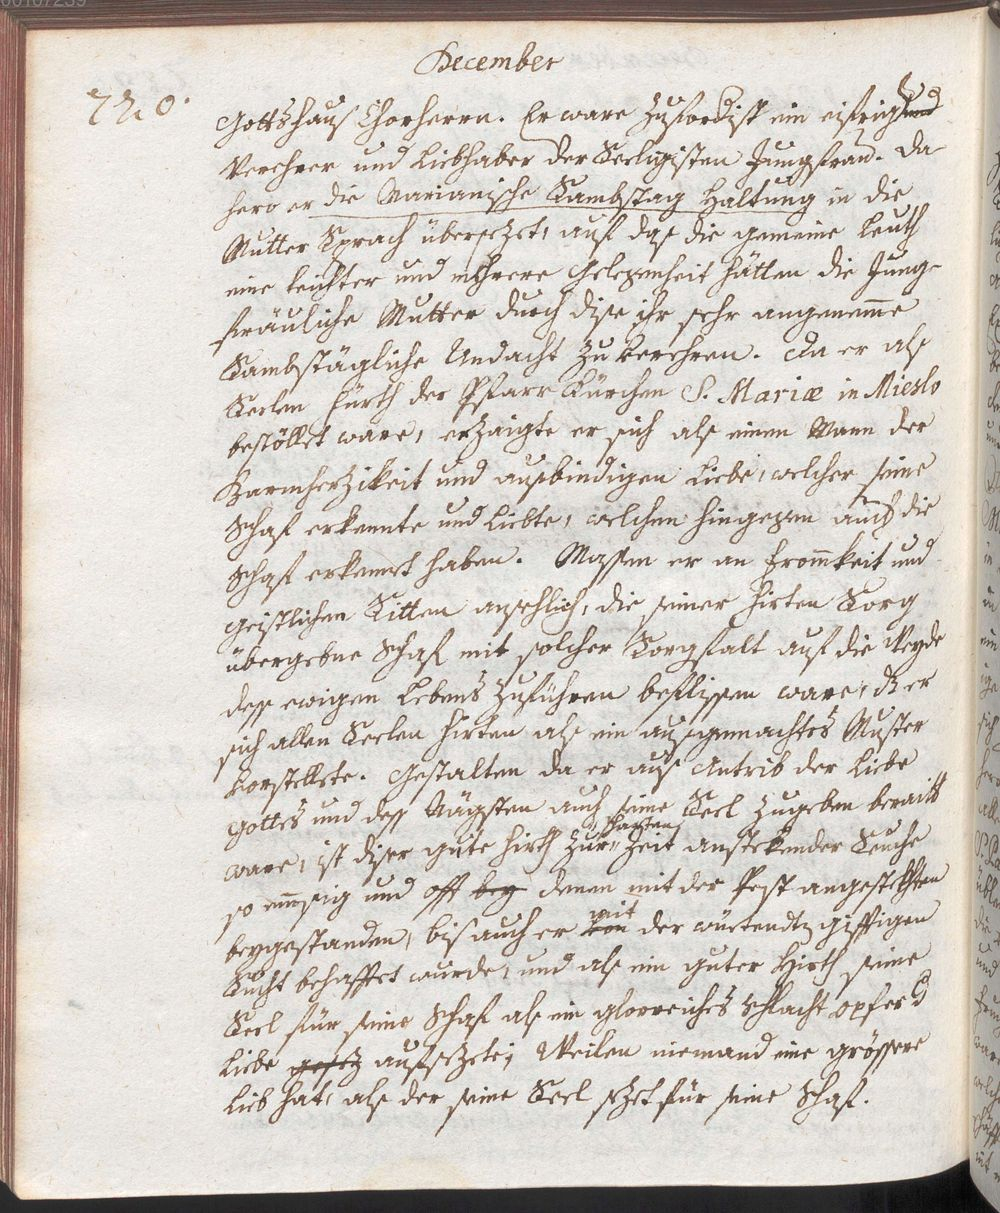 00107239
December
720.
Gottshaus Chorherrn. Er ware zuforderist ein eifrigster
Verehrer und Liebhaber der Seeligisten Jungfrau. Da-
hero er die Marianische Sambstag Haltung in die
Mutter Sprach übersezet, auf das die gemeine Leuth
eine leichter und mehrere Gelegenheit hätten die Jung-
fräuliche Mutter durch dise ihr sehr angenemme
Sambstägliche Andacht zu verehren. Da er als
Seelen Hürth der Pfarr Kürchen S. Mariæ in Mieslo
bestöllet ware, erzaigte er sich als einen Mann der
Barmherzikeit und ausbindigen Liebe, welcher seine
Schaf erkennte und liebte, welchen hingegen auch die
Schaf erkennt haben. Massen er an Frommkeit und
geistlichen Sitten ansehlich, die seiner Hirten Sorg
übergebne Schaf mit solcher Sorgfalt auf die Weyde
dess ewigen Lebens zuführen beflissen ware, dz er
sich allen Seelen Hirten als ein ausgemachtes Muster
vorstellete. Gestalten da er aus Antrib der Liebe
Gottes und dess Nägsten auch seine Seel zugeben beraith
ware, ist diser gute Hirth zur Zeit anstekender Seuche
so emmsig und offt bey denen mit der Pest angestekhten
beygestanden, bis auch er von mit der wüetendtn gifftigen
Sucht behafftet wurde, und als ein guter Hirth seine
Seel für seine Schaf als ein glorreiches Schlacht opfer d
Liebe aufsezete; Weilen niemand eine grössere
Lieb hat, als der seine Seel sezet für seine Schaf.